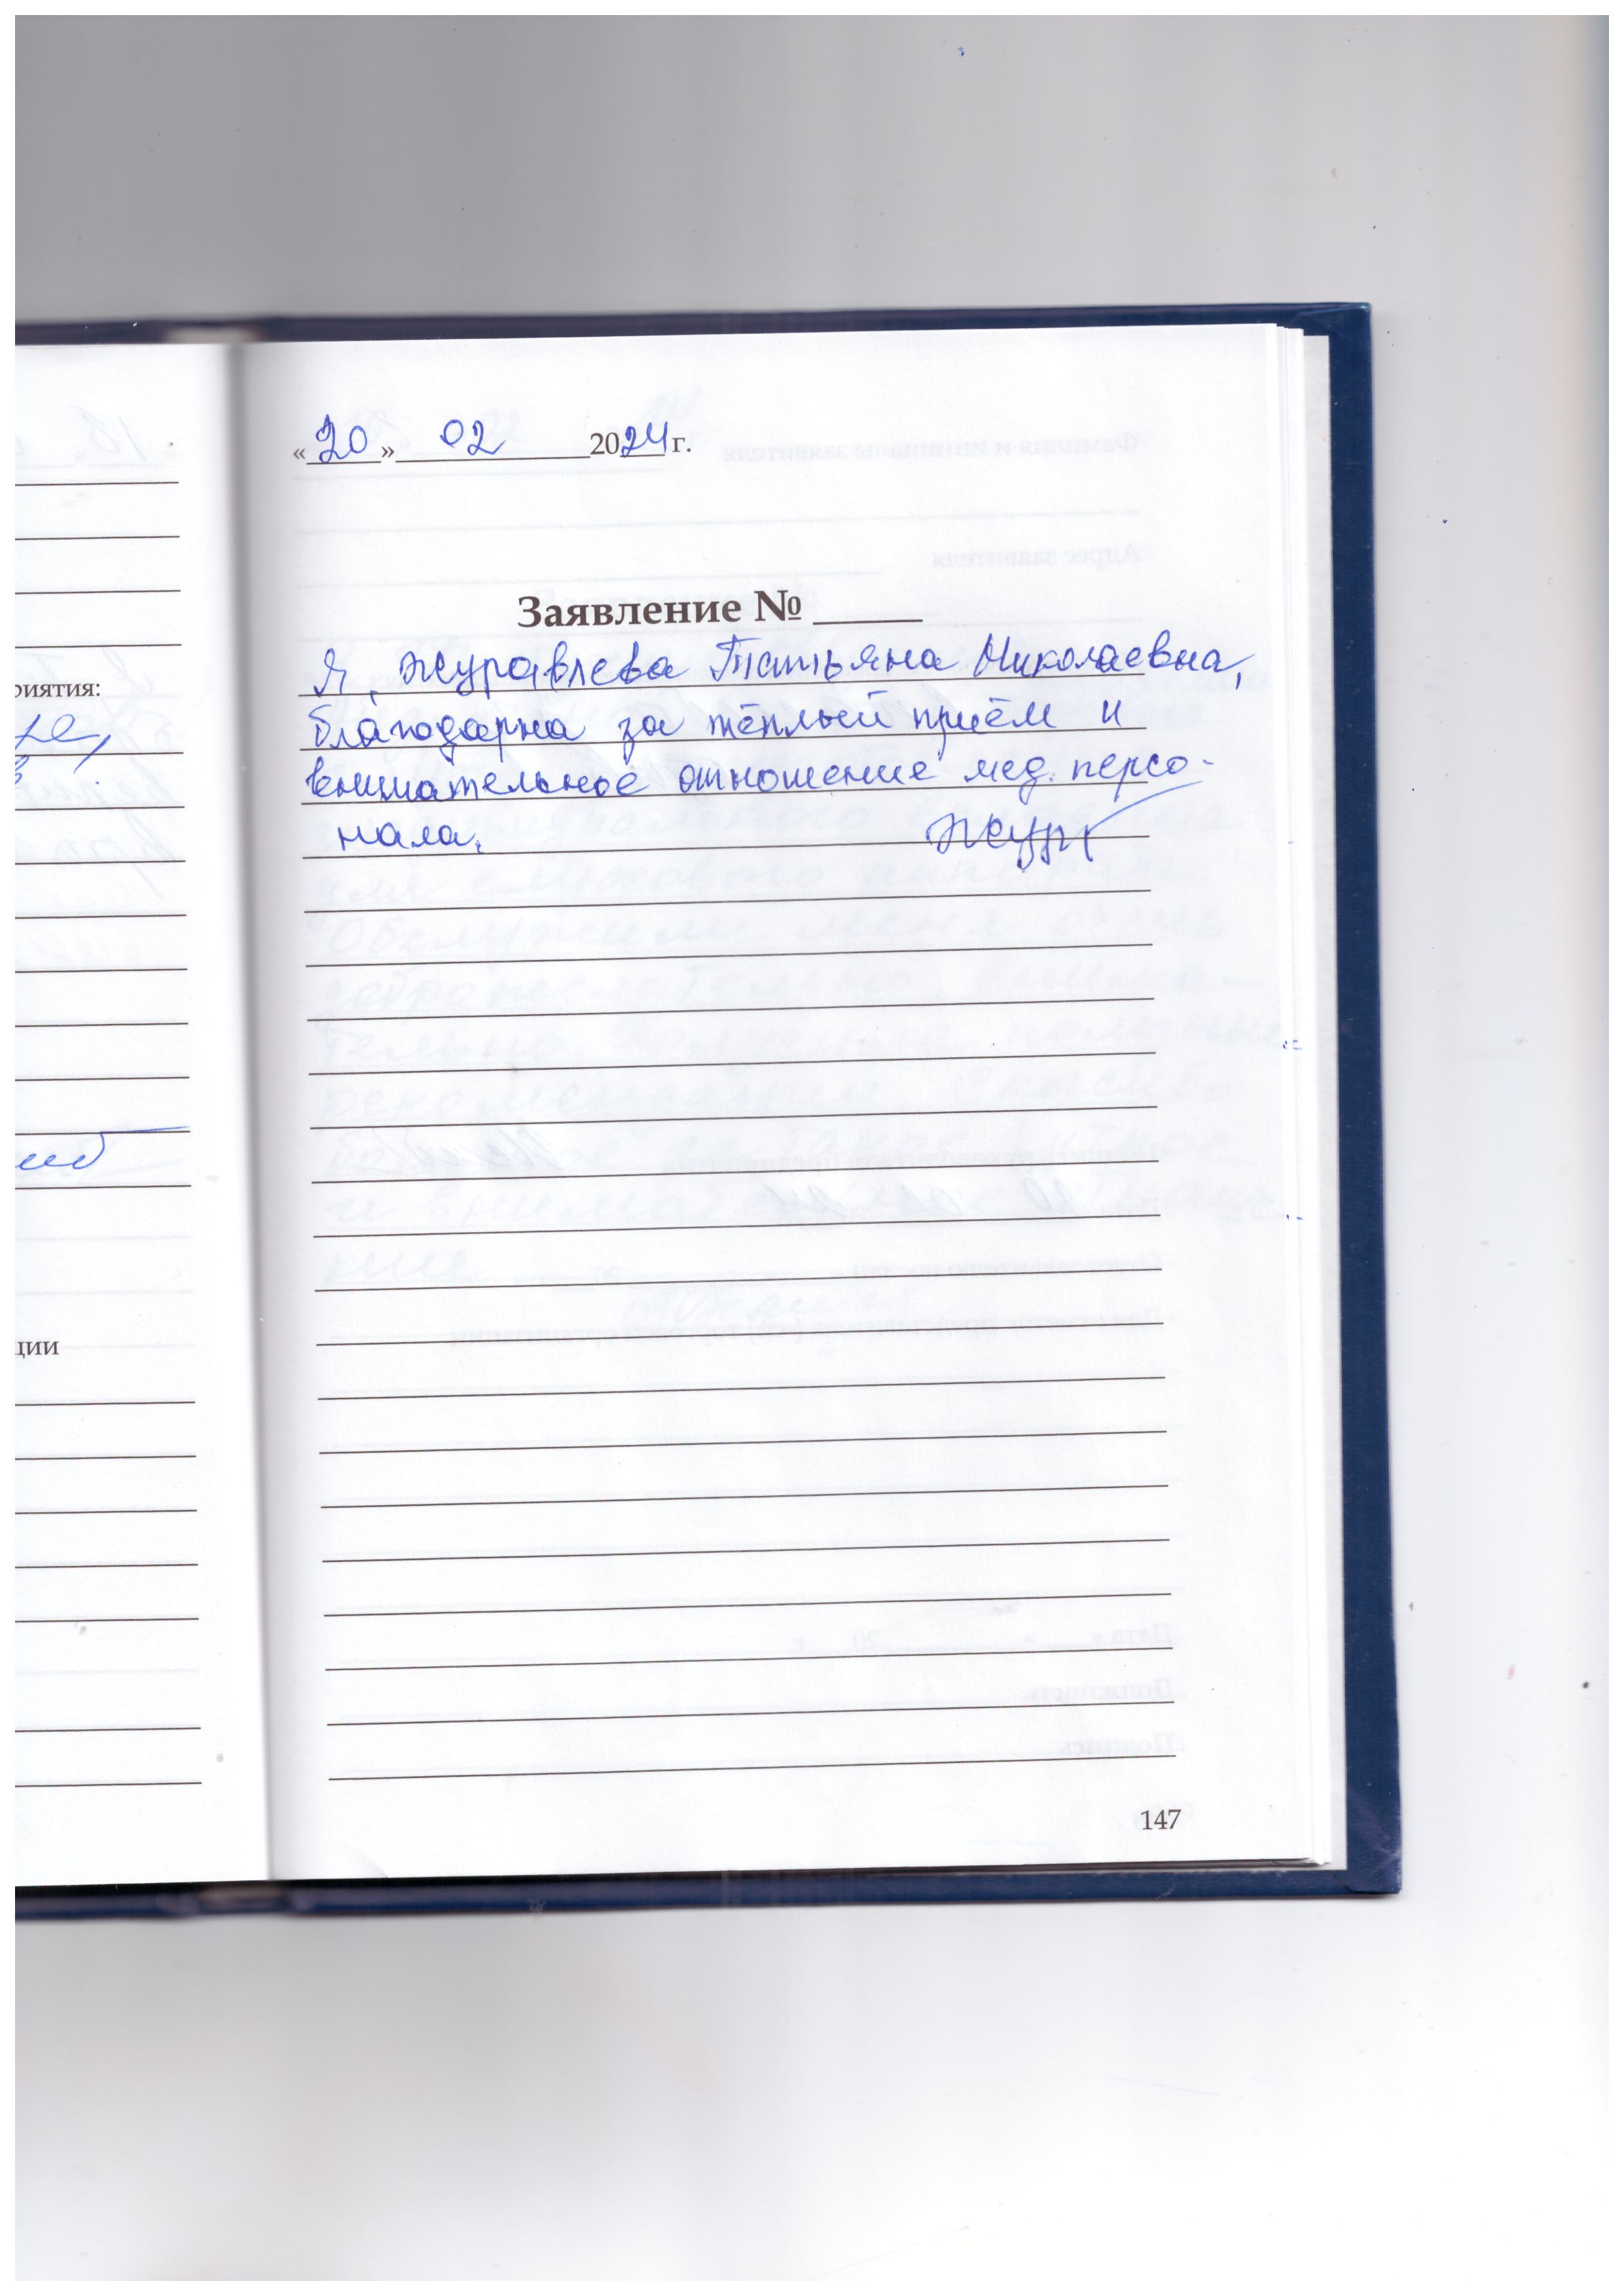 «20» 02 2024 г.
Заявление № ____
Я, Журавлева Татьяна Николаевна,
благодарна за тёплый приём и
внимательное отношение мед. персо-
нала.
риятия:
ции
147